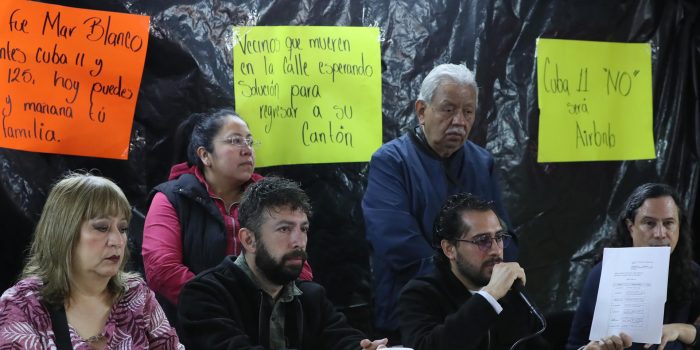 fue Mar Blanco
ntes Cuba 11 y
125, hoy puedes
y mañana tú
familia.
Vecinos que mueren
en la calle esperando
solución para
regresar a su
Cantón
Cuba 11 "NO"
será
Airbnb